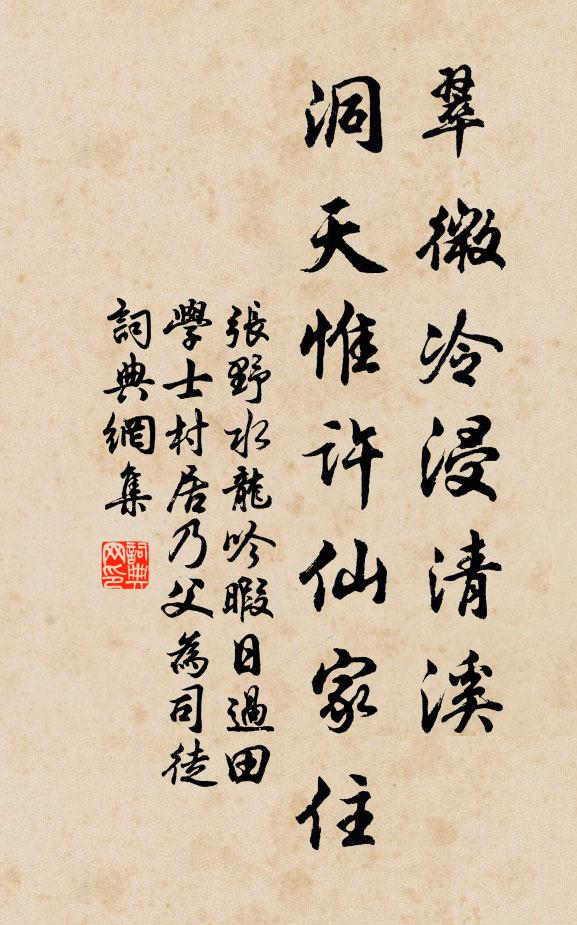 翠微冷浸清溪
洞天惟許仙家住
張野水龍吟暇日過田
學士村居乃父為司徒
詞典網集
詞典网印